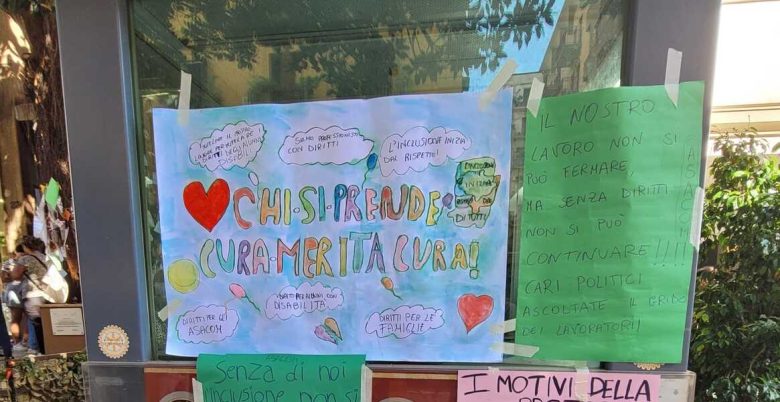 SIAMO PROFESSIONISTI
CON DIRITTI
L'INCLUSIONE INIZIA
DAL RISPETTO!
CHI·SI·PRENDE
CURA·MERITA CURA!
DI TUTTI
DIRITTI PER GLI
ASACOM
DISABILITÀ
DIRITTI PER LE
FAMIGLIE
IL NOSTRO
LAVORO NON SI
PUÒ FERMARE,
MA SENZA DIRITTI
NON SI PUÒ
CONTINUARE!!!!
CARI POLITICI
ASCOLTATE IL GRIDO
DEI LAVORATORI!
ASACOM
Senza di noi
l'inclusione non si
I MOTIVI DELLA